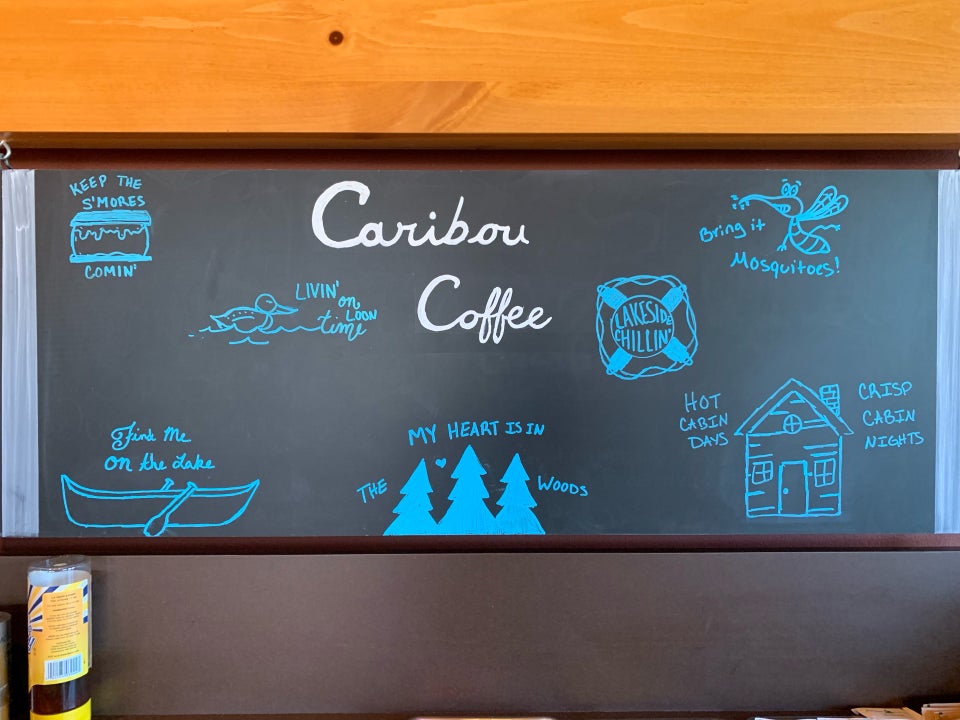 KEEP THE
S'MORES
COMIN'
Caribou
Coffee
Bring it
Mosquitoes!
LIVIN' on
LOON
time
LAKESIDE
CHILLIN'
Find Me
On the Lake
MY HEART IS IN
THE WOODS
HOT
CABIN
DAYS
CRISP
CABIN
NIGHTS